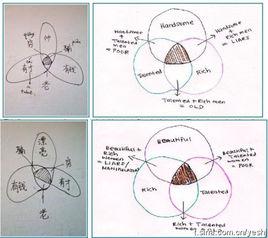 帅
穷
骗
有钱
老
Handsome
Handsome
+
Talented
men
= POOR
Handsome
+
Rich
men
= LIARS
Talented
Rich
Talented + Rich men
= OLD
漂亮
骗
穷
有钱
有才
老
Beautiful
Beautiful
+
Rich
women
= LIARS/
Beautiful +
Talented
women
= POOR
Rich
Talented
Rich + Talented
t.sina.com.cn/yeshj